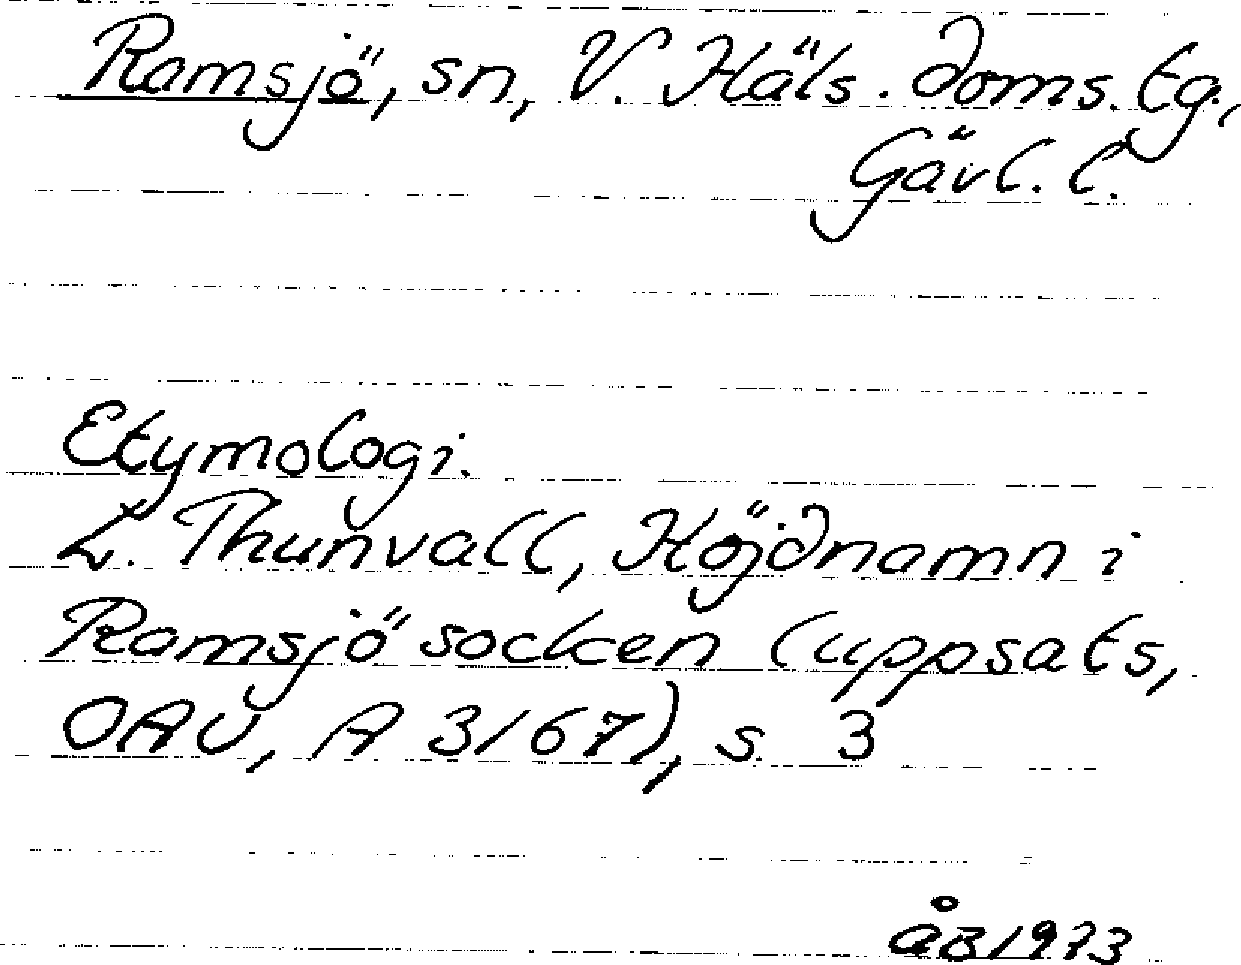 Ramsjö, sn, V. Häls. doms. tg.,
Gävl. l.
Etymologi.
L. Thunvall, Höjdnamn i
Ramsjö socken (uppsats,
OAU, A 3167), s. 3
åB1973